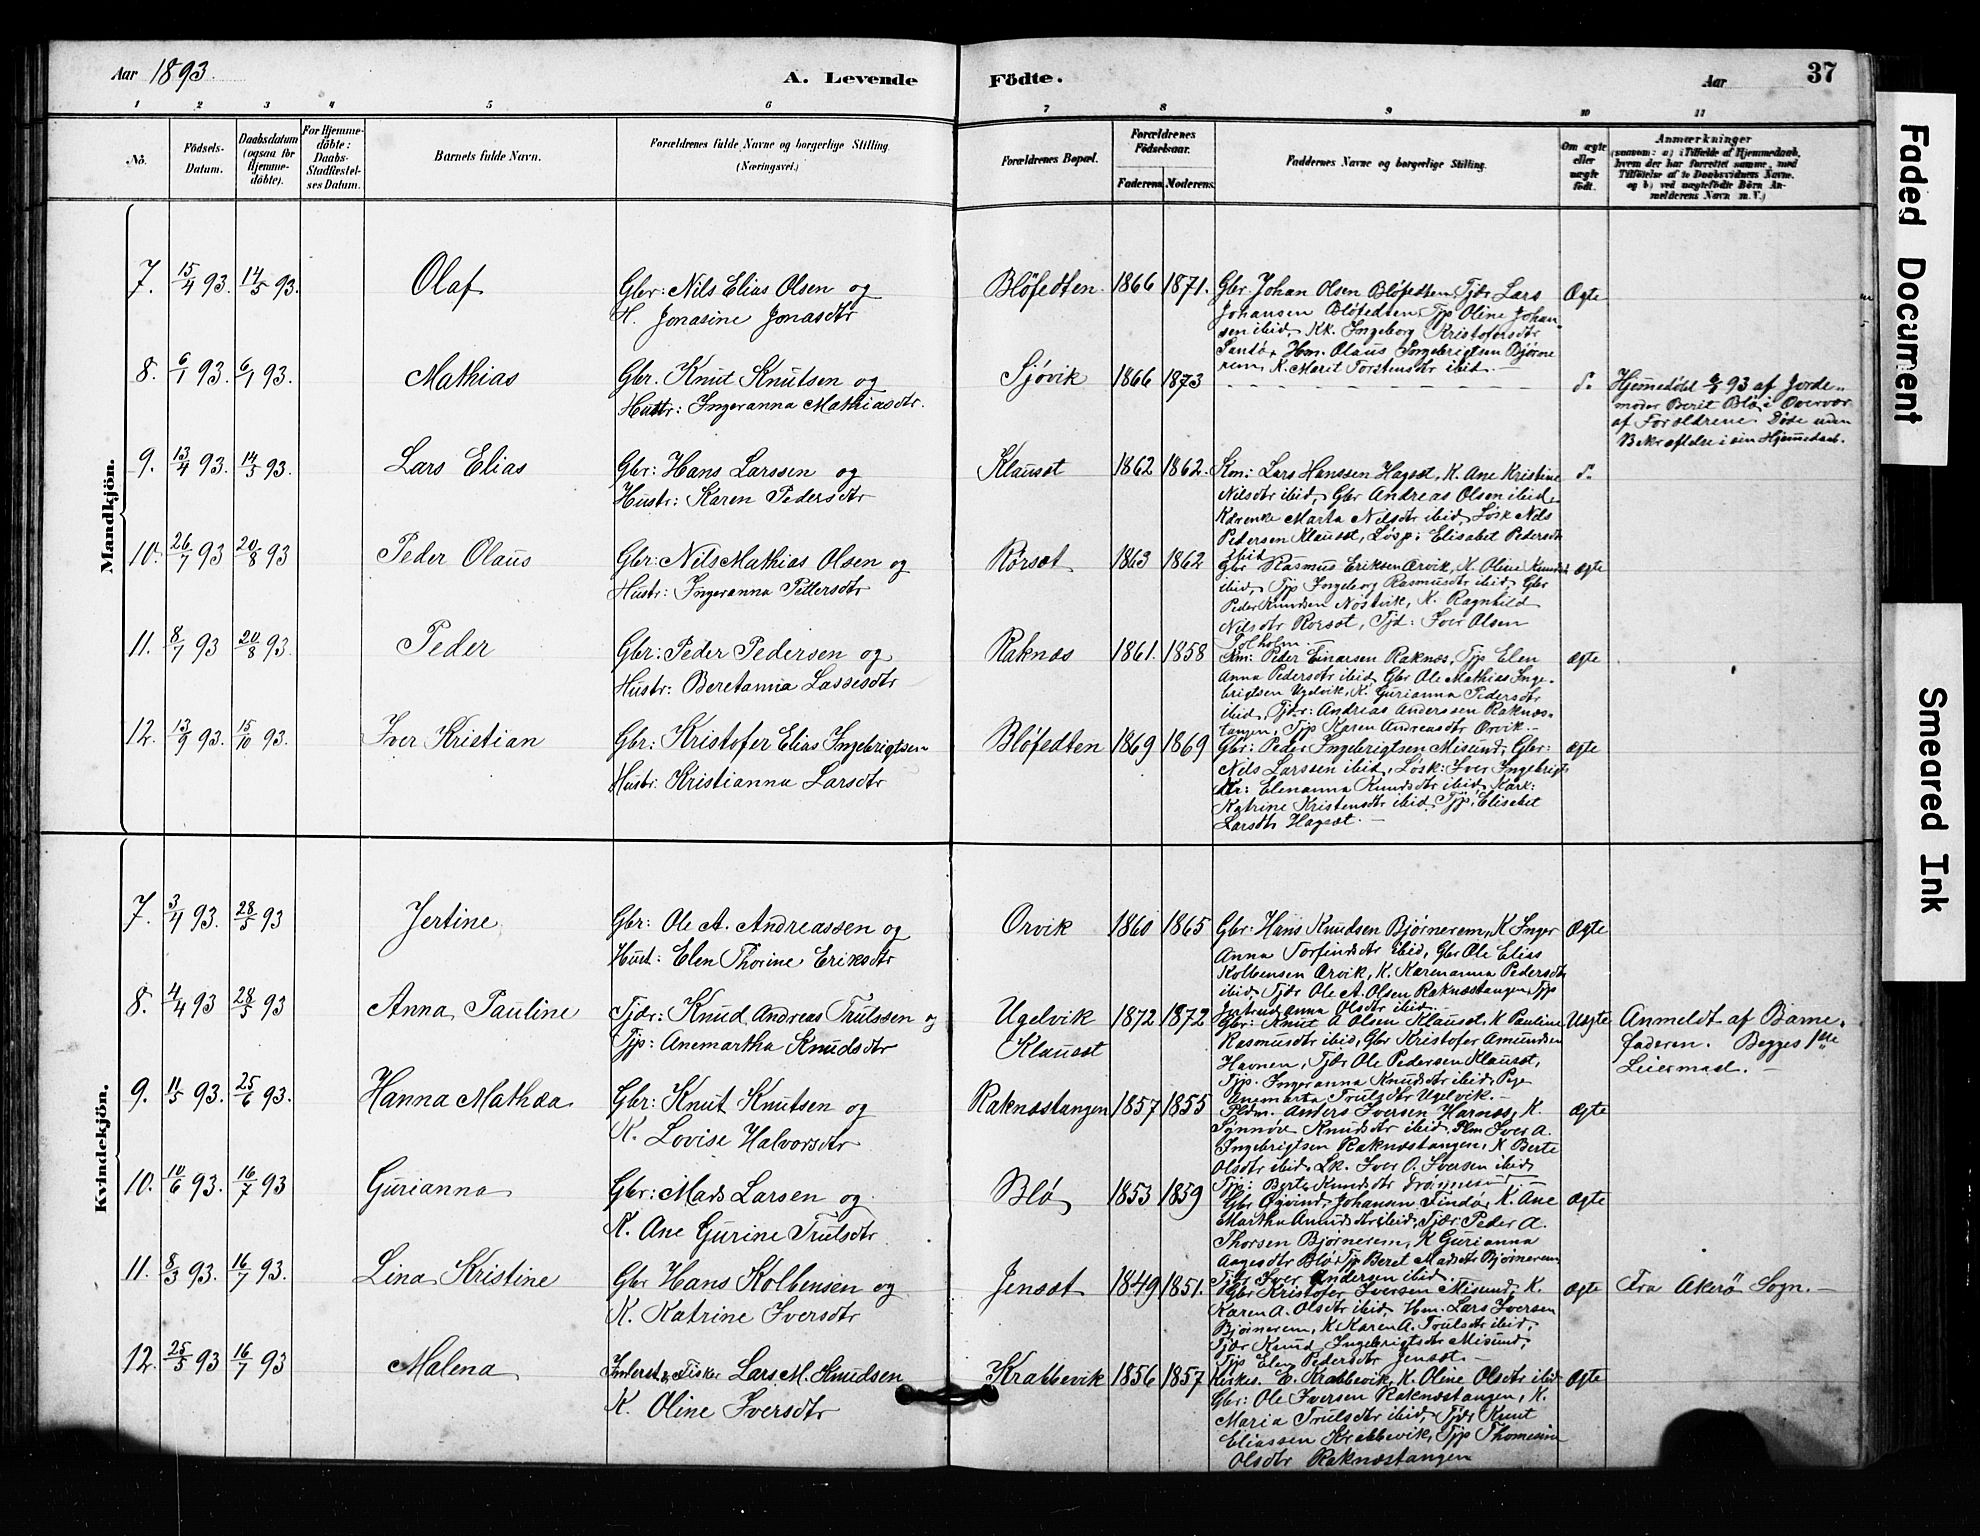 Aar 1893.
A. Levende
Födte.
Aar
37
1 2 3 4 5 6
7 8 9 10 11
No.
Födsels-
Datum.
Daabsdatum
(ogsaa for
Hjemme-
döbte).
For Hjemme-
döbte:
Daabs-
Stadfestel-
ses Datum.
Barnets fulde Navn.
Forældrenes fulde Navne og borgerlige Stilling
(Næringsvei.)
Forældrenes Bopæl.
Forældrenes
Födselsaar.
Faderens. Moderens.
Faddernes Navne og borgerlige Stilling.
Om ægte
eller
uægte
födt.
Anmærkninger
(saasom: a) i Tilfælde af Hjemmedaab,
hvem der har forrettet samme, med
Tilföielse af to Daabsvidners Navne.
og b) ved uægtefödte Börn An-
melderens Navn m. V.)
Mandkjön.
7. 15/4 93. 14/5 93. Olaf
Gbr: Nils Elias Olsen og
H. Jonasine Jonasdtr
Bløfedten. 1866 1871.
Gbr. Johan Olsen Bløfedten, Tjdr Lars
Johansen Bløfedten Tjp Oline Johan-
sen ibid, KK. Ingeborg Kristofersdtr
Hm. Olaus Ingebrigtsen Bjørne
rem, K. Marit Torstensdtr ibid.
Ægte
8. 6/1 93. 6/1 93. Mathias
Gbr. Knut Knutsen og
Hustr: Ingeranna Mathiasdtr.
Sjøvik 1866 1873
d.
Hjemmedøbt 6/1 93 af Jorde-
moder Berit Blø i Overvær
af Forældrene. Døde uden
9. 13/4 93. 14/5 93. Lars Elias
Gbr: Hans Larssen og
Hustr: Karen Pedersdtr
Klauset 1862 1862.
Km: Lars Hanssen Hagset, K. Ane Kristine
Nilsdtr ibid, Gbr Andreas Olsen ibid.
Kårenke Marta Nilsdtr ibid, Løsk Nils
Pedersen Klauset, Løsp: Elisabet Pedersdtr
ibid
d.
10. 26/7 93 20/8 93 Peder Olaus
Gbr: Nils Mathias Olsen og
Hustr: Ingeranna Pettersdtr
Rørset 1863 1862
Gbr Rasmus Eriksen Orvik, K. Oline Knudsd
ibid, Tjp Ingeborg Rasmusdtr ibid Gbr
Peder Knudsen Nøstvik, K. Ragnhild
Nilsdtr Rørset, Tjd: Iver Olsen
Solholm
ægte
11. 8/7 93 20/8 93. Peder
Gbr: Peder Pedersen og
Hustr: Beretanna Lassesdtr
Raknæs 1861. 1858
Km: Peder Einarsen Raknæs, Tjp Elen
Anna Pedersdtr ibid Gbr Ole Mathias Inge-
brigtsen Ugelvik, K. Gurianna Pedersdtr
ibid, Tjdr: Andreas Anderssen Raknæs-
tangen, Tjp Karen Andreasdtr Orvik.
ægte
12. 13/9 93. 15/10 93. Iver Kristian
Gbr: Kristofer Elias Ingebrigtsen
Hustr: Kristianna Larsdtr
Bløfedten 1869 1869
Gbr: Peder Ingebrigtsen Misund, Gbr:
Nils Larssen ibid, Løsk: Iver Ingebrigts
Elenanna Knudsdtr ibid, Kark:
Katrine Kristensdtr ibid, Tjp: Elisabet
Larsdtr Hagset.
ægte
Kvindekjön.
7. 3/4 93. 28/5 93 Jertine
Gbr: Ole A. Andreassen og
Hust: Elen Thorine Eriksdtr
Orvik 1860 1865
Gbr: Hans Knudsen Bjørnerem, K Inger
Anna Torfindsdtr ibid, Gbr Ole Elias
Kolbensen Orvik, K. Karenanna Pedersdtr
ibid, Tjdr Ole A. Olsen Raknæstangen, Tjp
Jertrudanna Olsdtr ibid
Ægte
8. 4/4 93 28/5 93 Anna Pauline
Tjdr: Knud Andreas Trulssen og
Tjp: Anemartha Knudsdtr
Ugelvik
Klauset
1872 1872
Gbr: Knut A Olsen Klauset, K Pauline
Rasmusdtr ibid, Gbr Kristofer Amundsen
Havnen, Tjdr Ole Pedersen Klauset,
Tjp. Ingeranna Knudsdtr ibid, Pige
Anemarta Trulsdtr Ugelvik.
Uægte
Anmeldt af Barne-
faderen. Begges 1ste
Leiermaal.
9. 11/5 93. 25/6 93. Hanna Mathea
Gbr: Knut Knutsen og
K. Lovise Halvorsdtr
Raknæstangen 1857 1855
Pldm. Anders Iversen Harnæs, K.
Synnøve Knudsdtr ibid, Plm Iver A.
Ingebrigtsen Raknæstangen, K Berte
Olsdtr ibid, Lk. Iver O. Iversen ibid,
Tjp: Berte Knudsdtr
ægte
10. 10/6 93. 16/7 93 Gurianna
Gbr: Mads Larsen og
K. Ane Gurine Trulsdtr
Blø 1853 1859
Gbr Øyvind Johansen Tindø, K. Ane
Martha Amundsdtr ibid, Tjdr: Peder A.
Thorsen Bjørnerem, K Gurianna
Aagesdtr Blø, Tjp Beret Madsdtr Bjørnerem
Tjdr Iver Andersen ibid.
ægte
11. 8/3 93. 16/7 93. Lina Kristine
Gbr Hans Kolbensen og
K. Katrine Iversdtr
Jenset 1849 1851.
Gbr Kristofer Iversen Misund, K.
Karen A. Olsdtr ibid, Hm. Lars Iversen
Bjørnerem, K Karen A. Trulsdtr ibid,
Tjdr Knud Ingebrigtsdtr Misund,
Tjp Elen Pedersdtr Jenset.
ægte
Fra Akerø Sogn.
12. 25/5 93 16/7 93 Malena
Inderst & Fisker Lars M. Knudsen
K. Oline Iversdtr
Krabbevik 1856 1857
Kirkes. E. Krabbevik, K. Oline Olsdtr ibid
Gbr: Ole Iversen Raknæstangen, K.
Maria Trulsdtr ibid, Tjdr Knut
Eliassen Krabbevik, Tjp Thomasine
Olsdtr Raknæstangen
Ægte
Faded Document
Smeared Ink